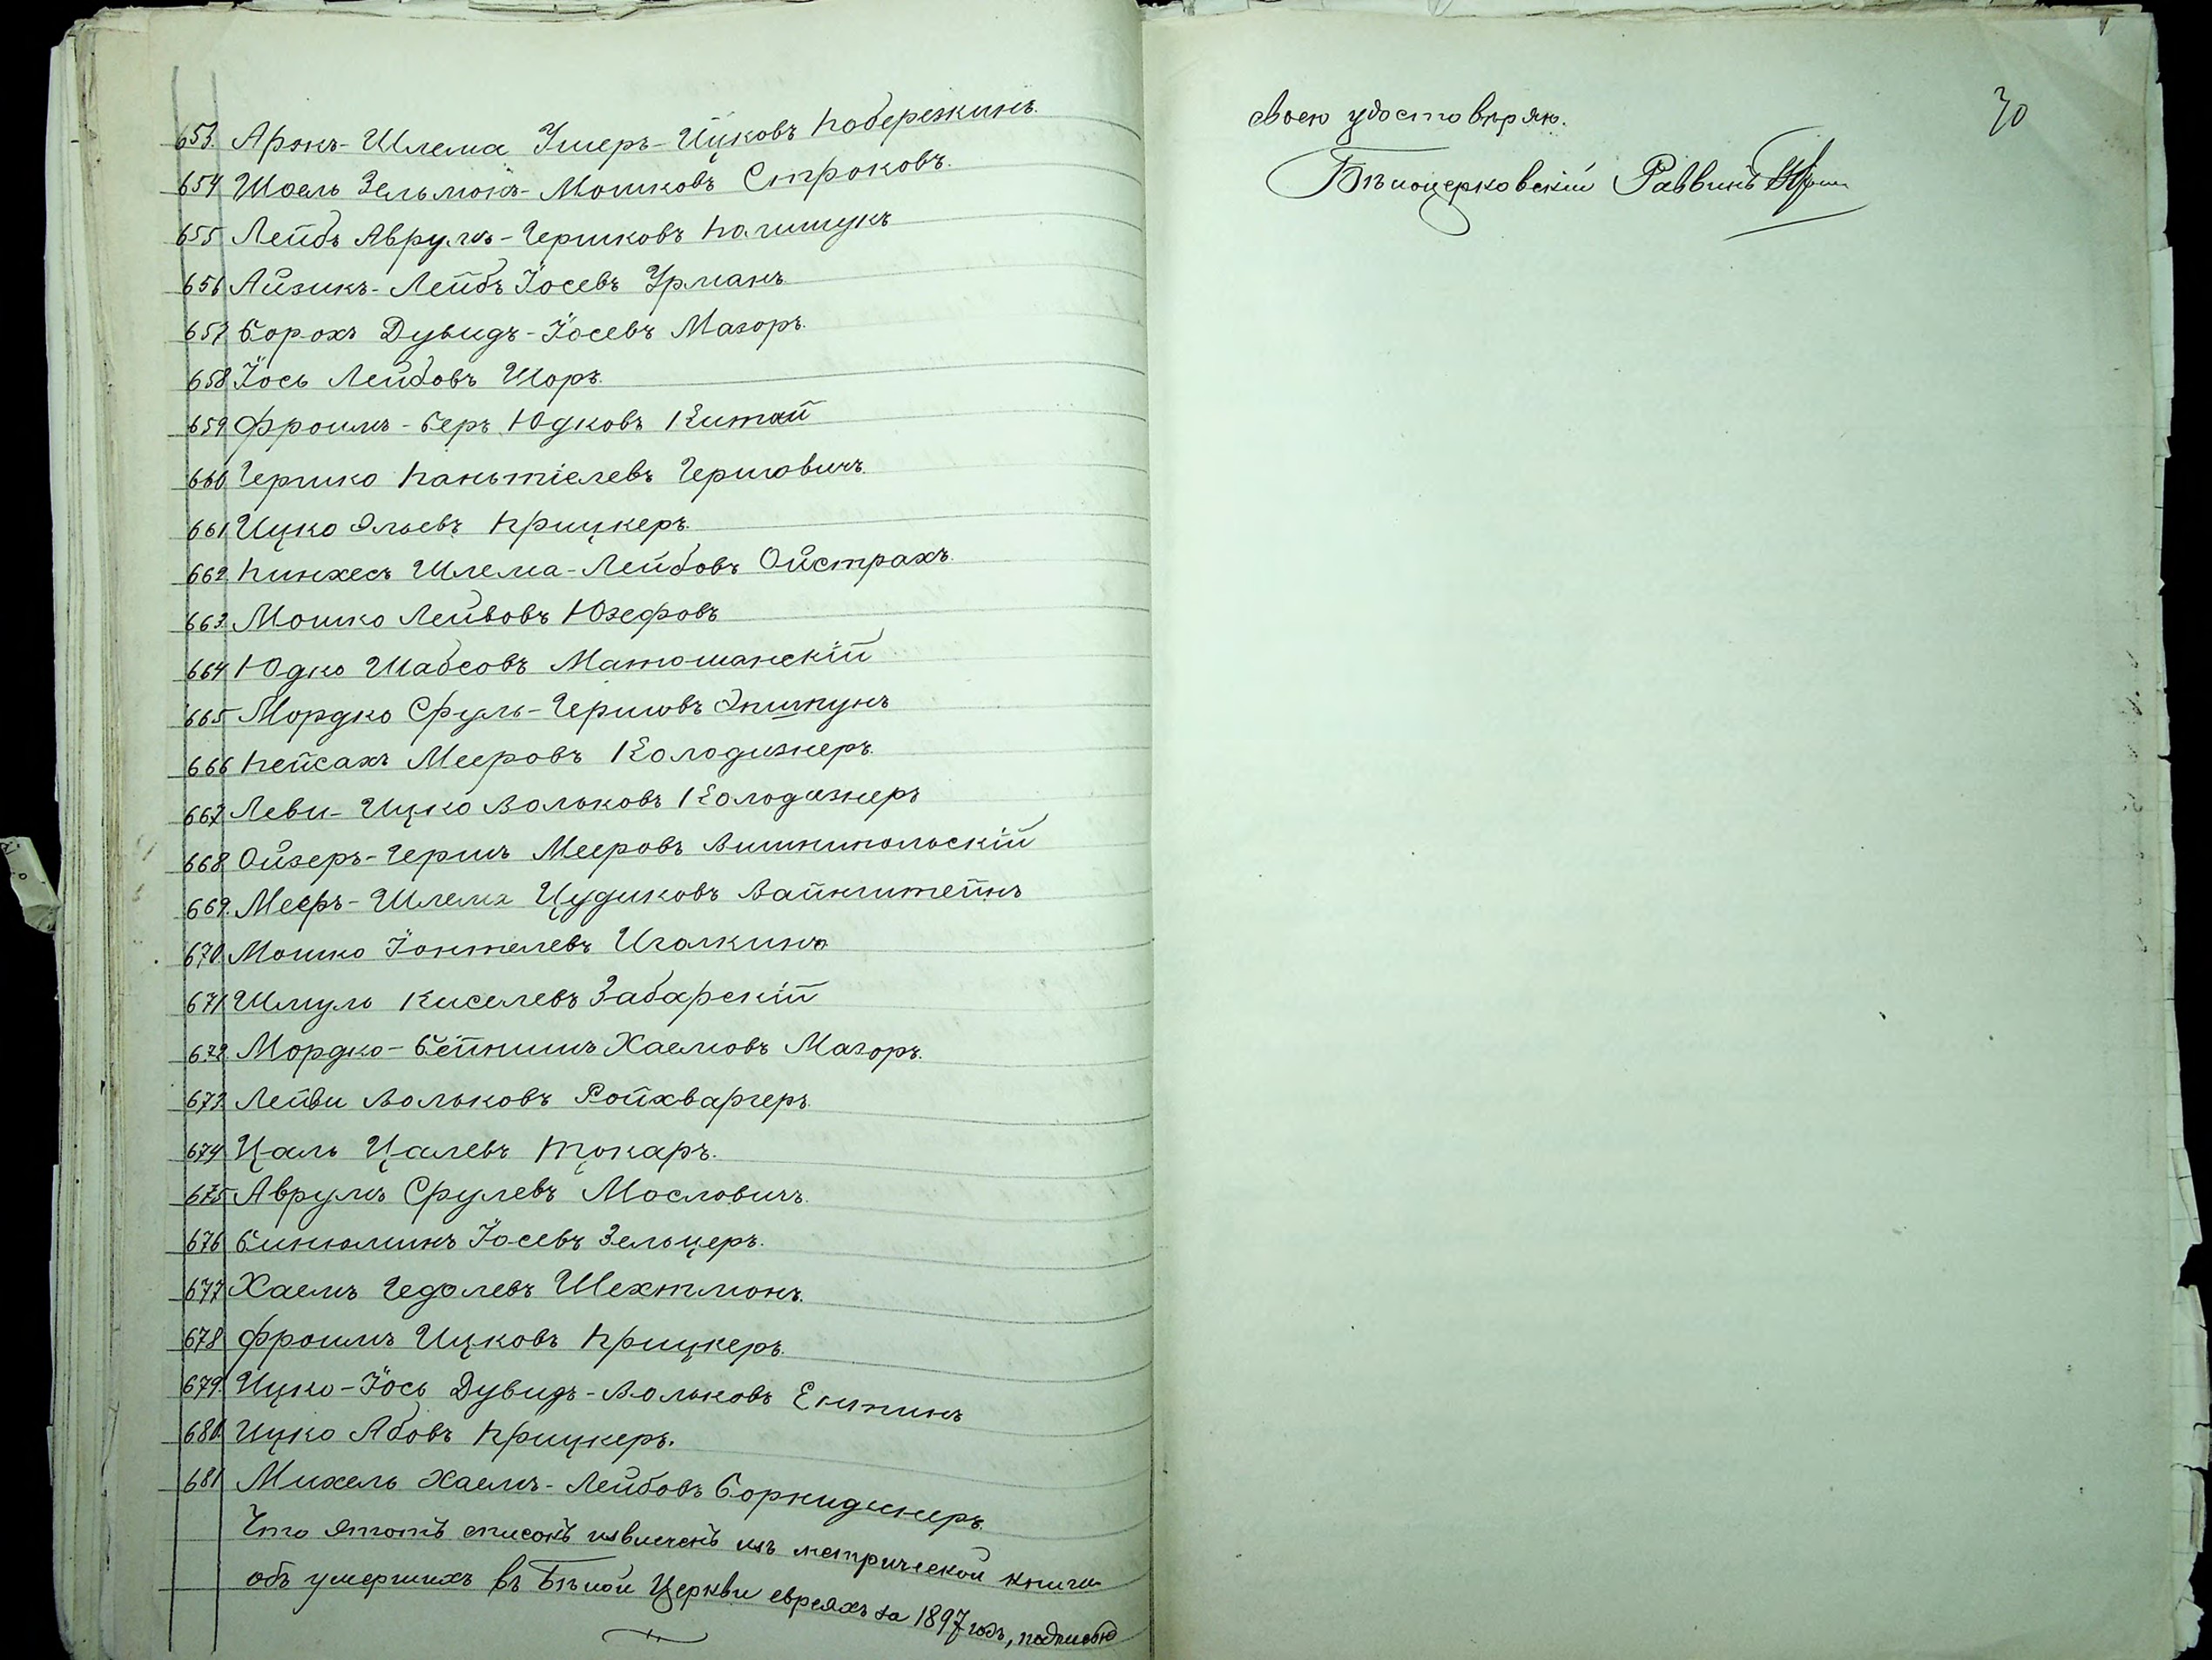 653. Аронъ-Шлема Умеръ-Ицковъ Побережинъ.
654 Шоель Зельмонъ-Мошковъ Строковъ.
655 Лейбъ Аврумъ-Гершковъ
656 Айзикъ-Лейбъ Іосевъ Урманъ
657 Борохъ Дувидъ-Іосевъ Мазоръ.
658 Іось Лейбовъ Шоръ.
659. Фроимъ-Беръ Юдковъ Китай
660. Гершко Паньтіелевъ Гершовичъ.
661. Ицко Эльевъ Прицкеръ.
662. Пинхесъ Шлема-Лейбовъ Ойстрахъ.
663. Мошко Лейвовъ Юзефовъ
664 Юдко Шабсовъ Матюшанскій
665 Мордко Сруль-Гершовъ
666 Пейсахъ Мееровъ Колодизнеръ.
667. Леви-Ицко Вольковъ Колодизнеръ
668. Ойзеръ-Гершъ Мееровъ Вишнипольскій
669. Мееръ-Шлема Цудиковъ Вайнштейнъ
670. Мошко Іонтелевъ Иголкинъ
671. Шмуль Киселевъ Забарскій
672. Мордко-Бейнишъ Хаемовъ Мазоръ.
673. Лейви Вольковъ Ройхваргеръ.
674. Цаль Цалевъ Токаръ.
675 Аврумъ Срулевъ Мословичъ.
676 Бинюминъ Іосевъ Зельцеръ.
677. Хаемъ Гедолевъ Шехтмонъ.
678 Фроимъ Ицковъ Прицкеръ.
679. Ицко-Іось Дувидъ-Вольковъ
680. Ицко Абовъ Прицкеръ.
681 Михель Хаемъ-Лейбовъ Боркидинеръ.
Что этотъ списокъ извлеченъ изъ метрической книги
объ умершихъ въ Бѣлой Церкви евреяхъ за 1897 годъ, подписью
70
своею удостовѣряю.
Бѣлоцерковскій Раввинъ